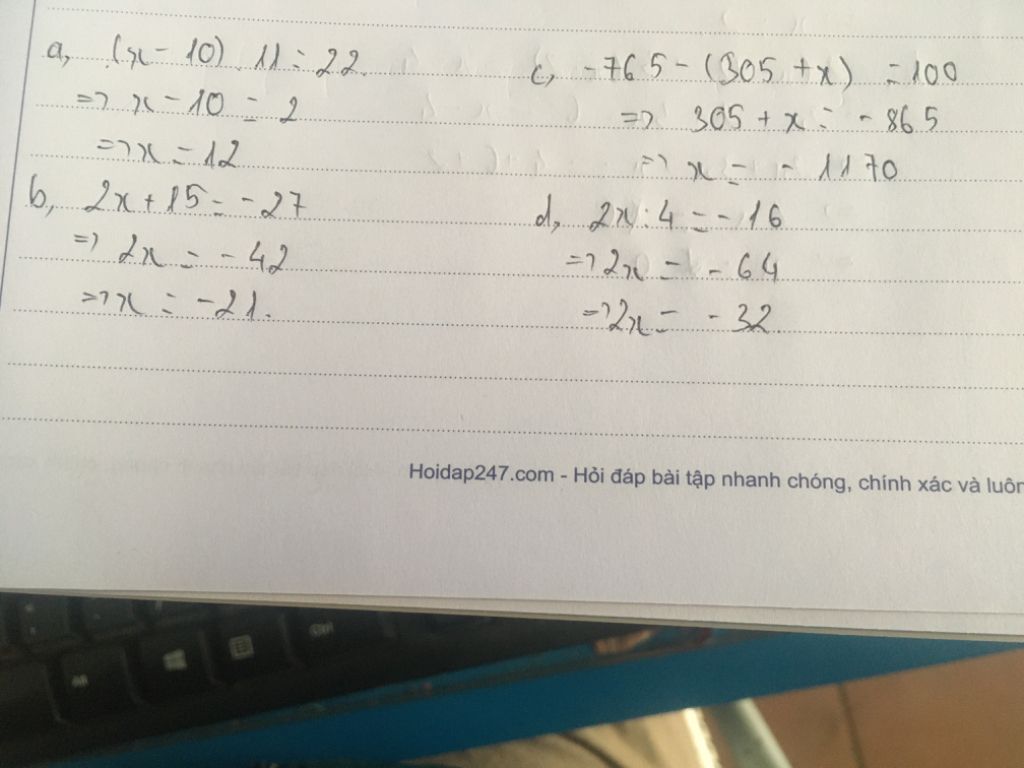 a, (x - 10) . 11 = 22.
=> x - 10 = 2
=> x = 12
b, 2x + 15 = - 27
=> 2x = - 42
=> x = - 21.
c, - 765 - (305 + x) = 100
=> 305 + x = - 865
=> x = - 1170
d, 2x : 4 = - 16
=> 2x = - 64
=> 2x = - 32
Hoidap247.com - Hỏi đáp bài tập nhanh chóng, chính xác và luôn